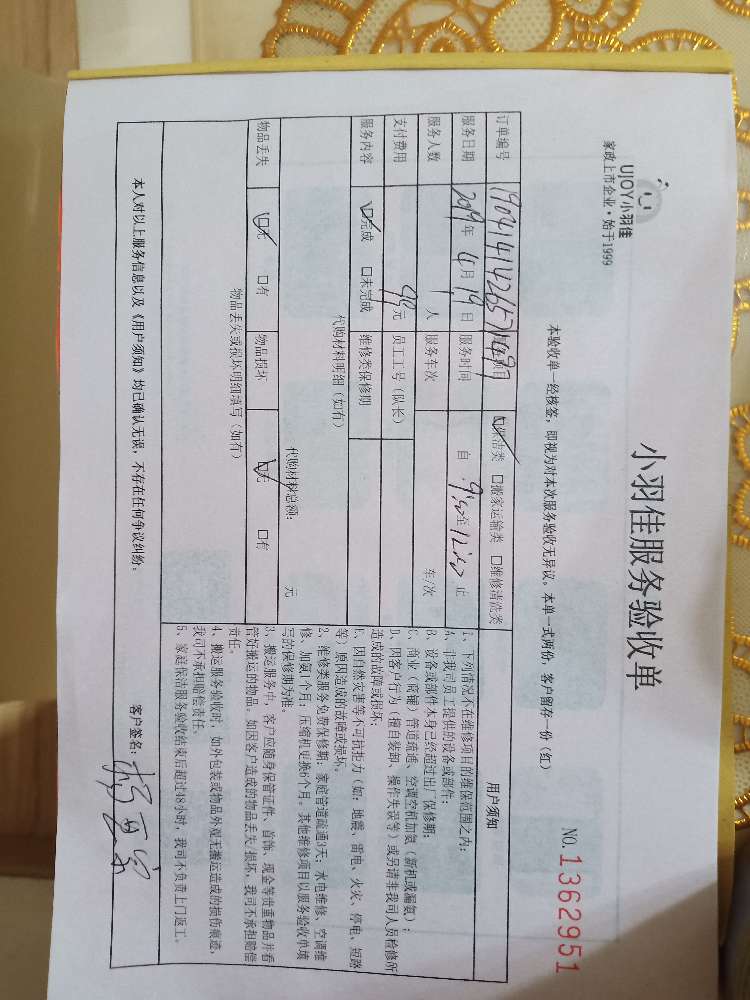 UJOY小羽佳
家政上市企业·始于1999
小羽佳服务验收单
NO.1362951
本验收单一经核签，即视为对本次服务验收无异议。本单一式两份，客户留存一份（红）
订单编号
☑保洁类 □搬家运输类 □维修清洗类
服务日期 2019年 4月 19日 服务时间 自 9:00 至 12:00 止
服务人数 1 人 服务车次 车/次
支付费用 99元 员工工号（队长）
服务内容 ☑完成 □未完成 维修类保修期
代购材料明细（如有）
代购材料总额： 元
物品丢失 ☑无 □有 物品损坏 ☑无 □有
物品丢失或损坏明细填写（如有）
用户须知
1、下列情况不在维修项目的维保范围之内：
A、非我司员工提供的设备或部件；
B、设备或部件本身已经超过出厂保修期；
C、商业（商铺）管道疏通、空调空机加氨（新机或漏氨）；
D、因客户行为（擅自装卸、操作失误等）或另请非我司人员检修所
造成的故障或损坏；
E、因自然灾害等不可抗拒力（如：地震、雷电、火灾、停电、短路
等）原因造成的故障或损坏。
2、维修类服务免费保修期：家庭管道疏通3天；水电维修、空调维
修、加氨1个月；压缩机更换6个月。其他维修项目以服务验收单填
写的保修期为准。
3、搬运服务中，客户应随身保管证件、首饰、现金等贵重物品并看
管好搬运的物品。如因客户造成的物品丢失/损坏，我司不承担赔偿
责任。
4、搬运服务验收时，如外包装或物品外观无搬运造成的损伤痕迹，
我司不承担赔偿责任。
5、家庭保洁服务验收结束后超过48小时，我司不负责上门返工。
本人对以上服务信息以及《用户须知》均已确认无误，不存在任何争议纠纷。
客户签名：